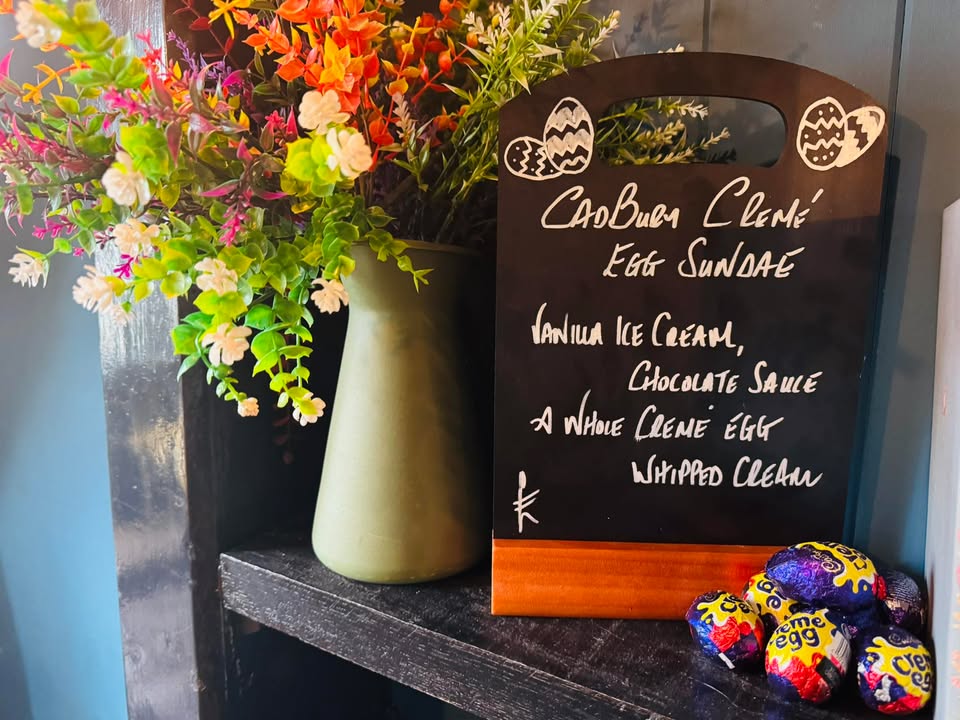 CADBURY CREMÉ
EGG SUNDAE
VANILLA ICE CREAM,
CHOCOLATE SAUCE
A WHOLE CREMÉ ÉGG
WHIPPED CREAM
creme
egg
creme
egg